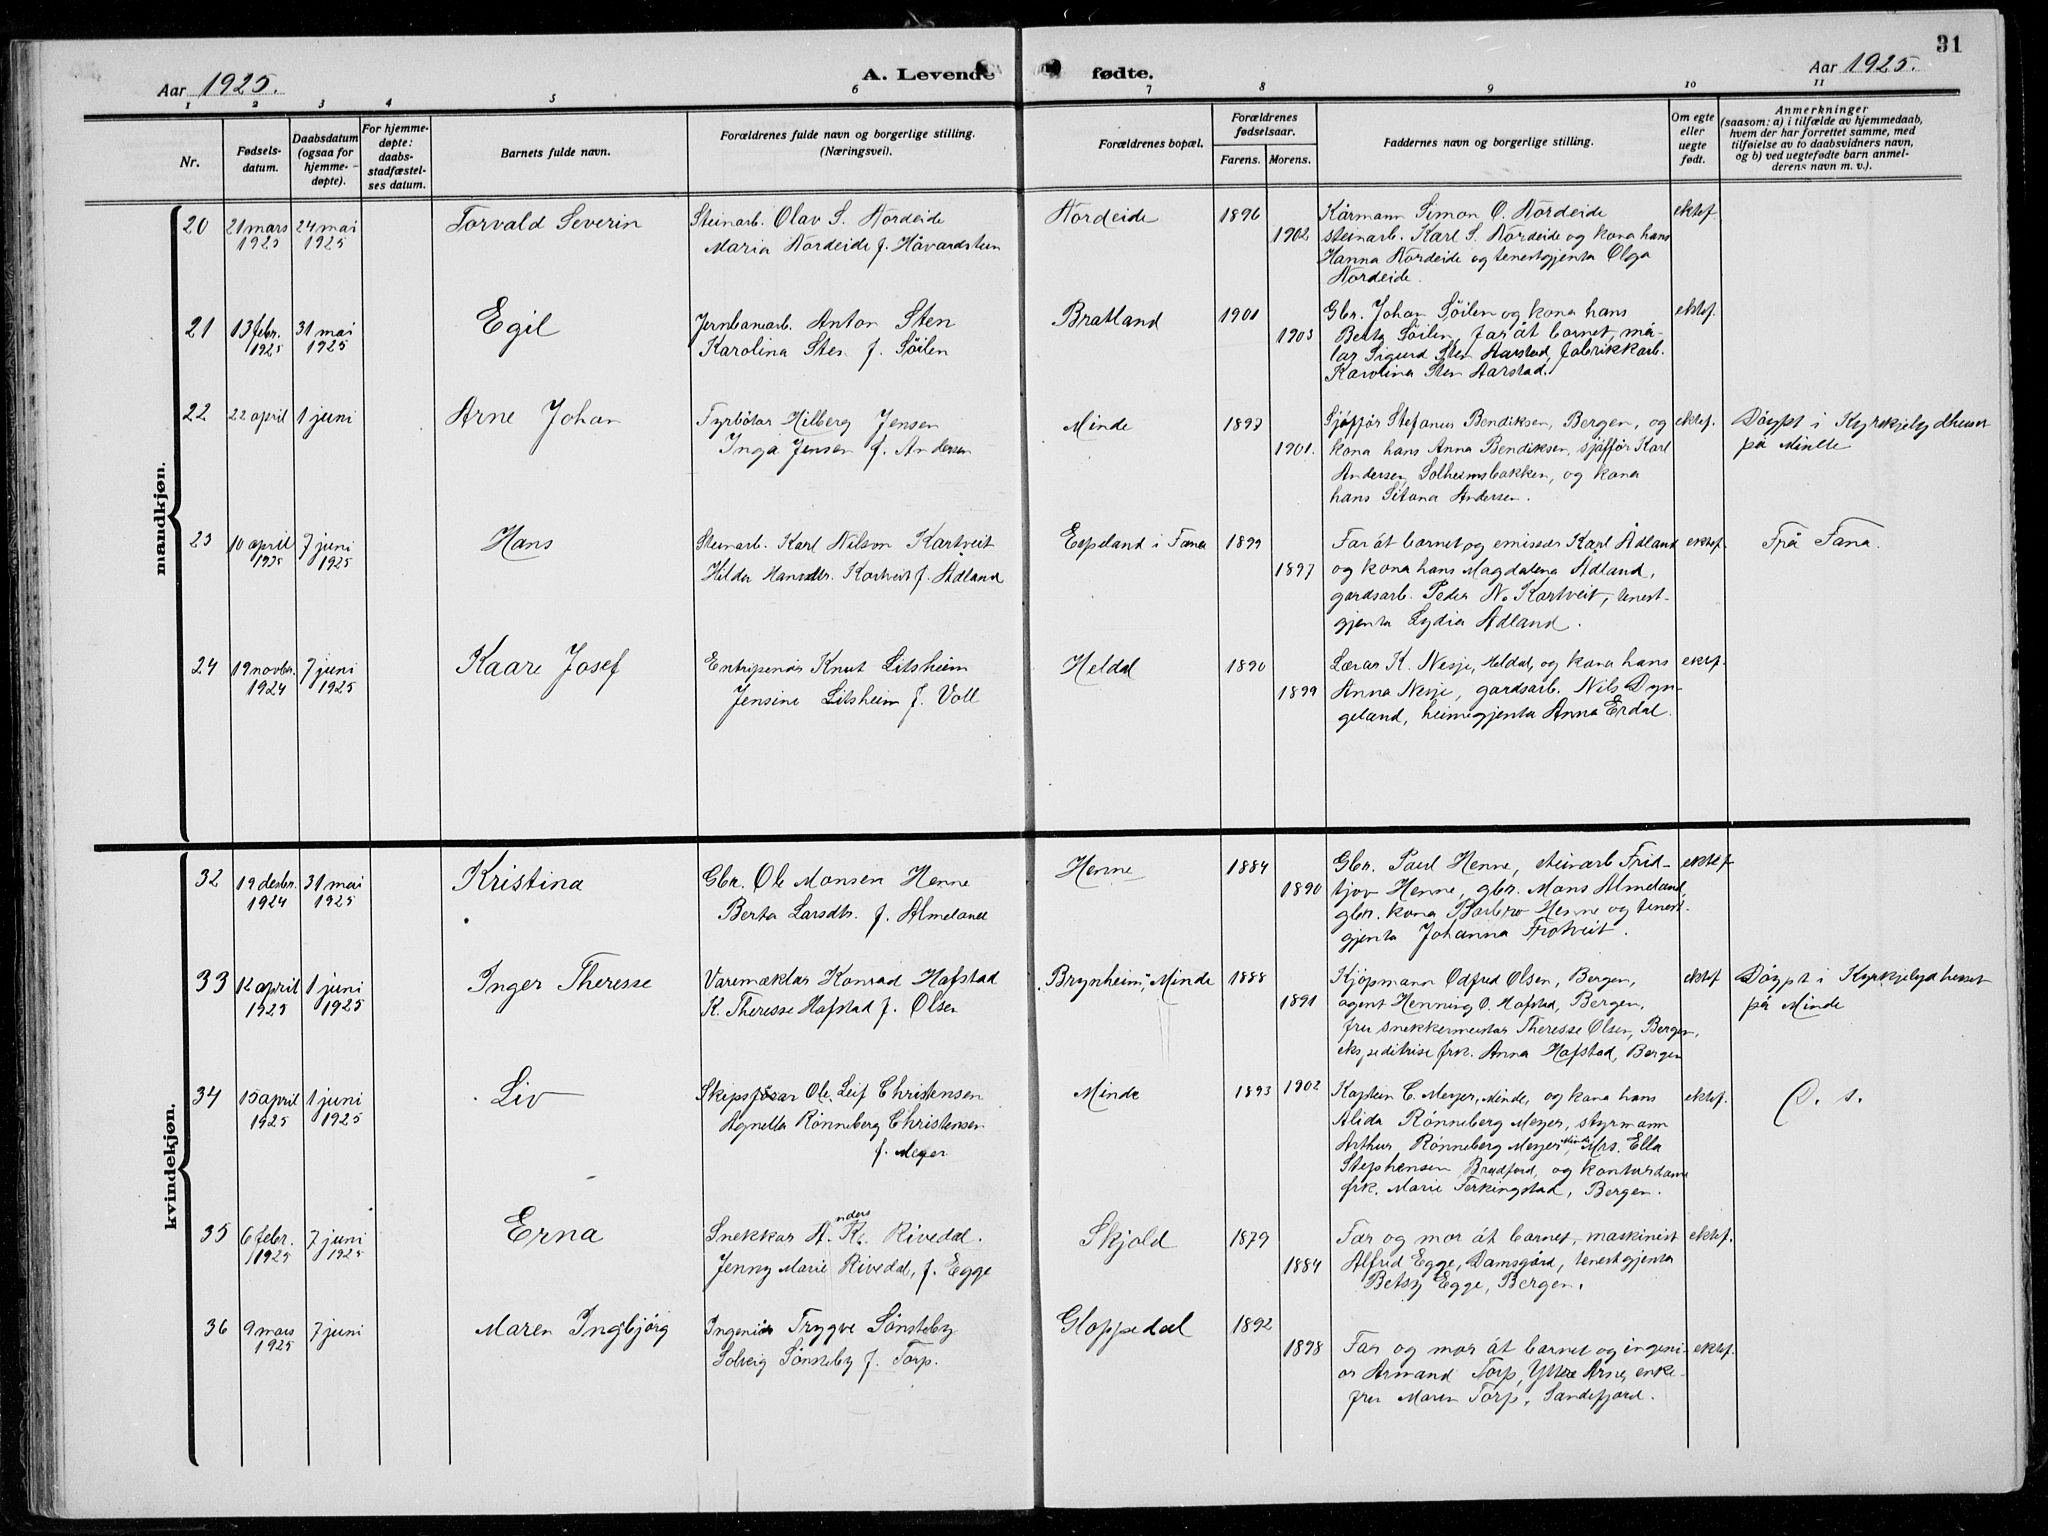 31
Aar 1925.
A. Levende
fødte.
Aar 1925.
1 2 3 4 5 6 7 8 9 10 11
Nr.
Fødsels-
datum.
Daabsdatum
(ogsaa for
hjemme-
døpte).
For hjemme-
døpte:
daabs-
stadfæstel-
ses datum.
Barnets fulde navn.
Forældrenes fulde navn og borgerlige stilling.
(Næringsvei).
Forældrenes bopæl.
Forældrenes
fødselsaar.
Farens. Morens.
Faddernes navn og borgerlige stilling.
Om egte
eller
uegte
født.
Anmerkninger
(saasom: a) i tilfælde av hjemmedaab,
hvem der har forrettet samme, med
tilføielse av to daabsvidners navn,
og b) ved uegtefødte barn anmel-
derens navn m. v.).
mandkjøn.
20
21 mars
1925
24 mai
1925
Torvald Severin
Steinarb. Olav S. Nordeide
Maria Nordeide f. Håvardstun
Nordeide
1896
1902
Kårmann Simon O. Nordeide
steinarb. Karl S. Nordeide og kona hans
Hanna Nordeide og tenestgjenta Olga
Nordeide.
ektef.
21
13 febr.
1925
31 mai
1925
Egil
Jernbanearb. Anton Sten
Karolina Sten f. Søilen
Bratland
1901
1903
Gbr. Johan Søilen og kona hans
Berta Søilen, far åt barnet, må-
lar Sigurd Sten Aarstad, fabrikkarb.
Karolina Sten Aarstad.
ektef.
22
22 april
1 juni
Arne Johan
Fyrbøtar Hilberg Jensen
Inga Jensen f. Andersen
Minde
1897
1901.
Sjøffør Stefanus Bendiksen, Bergen, og
kona hans Anna Bendiksen, sjåffør Karl
Andersen, Solheimsbakken, og kona
hans Andersen.
ektef.
Døypt i Kyrkjelydhuset
på Minde
23
10 april
1925
7 juni
1925
Hans
Steinarb. Karl Nilson Kartveit
Hilda Hansdtr. Kartveit f. Ådland
Espeland i Fana
1899
1897
Far åt barnet og emissær Karl Ådland
og kona hans Magdalena Ådland,
gardsarb. Peder N. Kartveit, tenest-
gjenta Lydia Ådland.
ektef.
Frå Fana.
24
19 novbr.
1924
7 juni
1925
Kaare Josef
Entripenør Knut Litsheim
Jensine Litsheim f. Voll
Heldal
1890
1899
Lærar K. Nesje, Heldal, og kona hans
Anna Nesje, gardsarb. Nils Dyn-
geland, heimegjenta Anna Erdal.
ektef.
kvindekjøn.
32
19 desbr.
1924
31 mai
1925
Kristina
Gbr. Ole Monsen Henne
Berta Larsdtr. f. Almeland
Henne
1884
1890
Gbr. Paul Henne, steinarb Frid-
tjov Henne, gbr. Mons Almeland,
gbr. kona Barbro Henne og tenest-
gjenta Johanna Frotveit.
ektef
33
12 april
1925
1 juni
1925
Inger Theresse
Varemæklar Konrad Hafstad
K. Theresse Hafstad f. Olsen
"Brynheim", Minde
1888
1891
Kjøpmann Odfred Olsen, Bergen,
agent Henning O. Hafstad, Bergen,
fru snekkermeistar Theresse Olsen, Bergen,
ekspeditrise frk. Anna Hafstad, Bergen
ektef
Døypt i Kyrkjelydhuset
på Minde
34
15 april
1925
1 juni
1925
Liv
Skipsførar Ole Leif Christensen
Agnella Rønneberg Christensen
f. Meyer
Minde
1893
1902
Kaptein C. Meyer, Minde, og kona hans
Alida Rønneberg Meyer, styrmann
Arthur Rønneberg Meyer, Minde, Mrs. Ella
Stephensen Bradford, og kontordame
frk. Marie Ferkingstad, Bergen.
ektef.
D. s.
35
6 febr.
1925
7 juni
1925
Erna
Snekkar Anders K. Rivedal.
Jenny Marie Rivedal, f. Egge
Skjold
1879
1884
Far og mor åt barnet, maskinist
Alfrid Egge, Damsgård, tenestgjenta
Betsy Egge, Bergen.
ektef.
36
9 mars
1925
7 juni
Maren Ingbjørg
Ingeniør Trygve Sønsteby
Solveig Sønsteby f. Torp.
Gloppedal
1892
1898
Far og mor åt barnet og ingeni-
ør Armand Torp, Ytre Arne, enke-
fru Maren Torp, Sandefjord.
ektef.